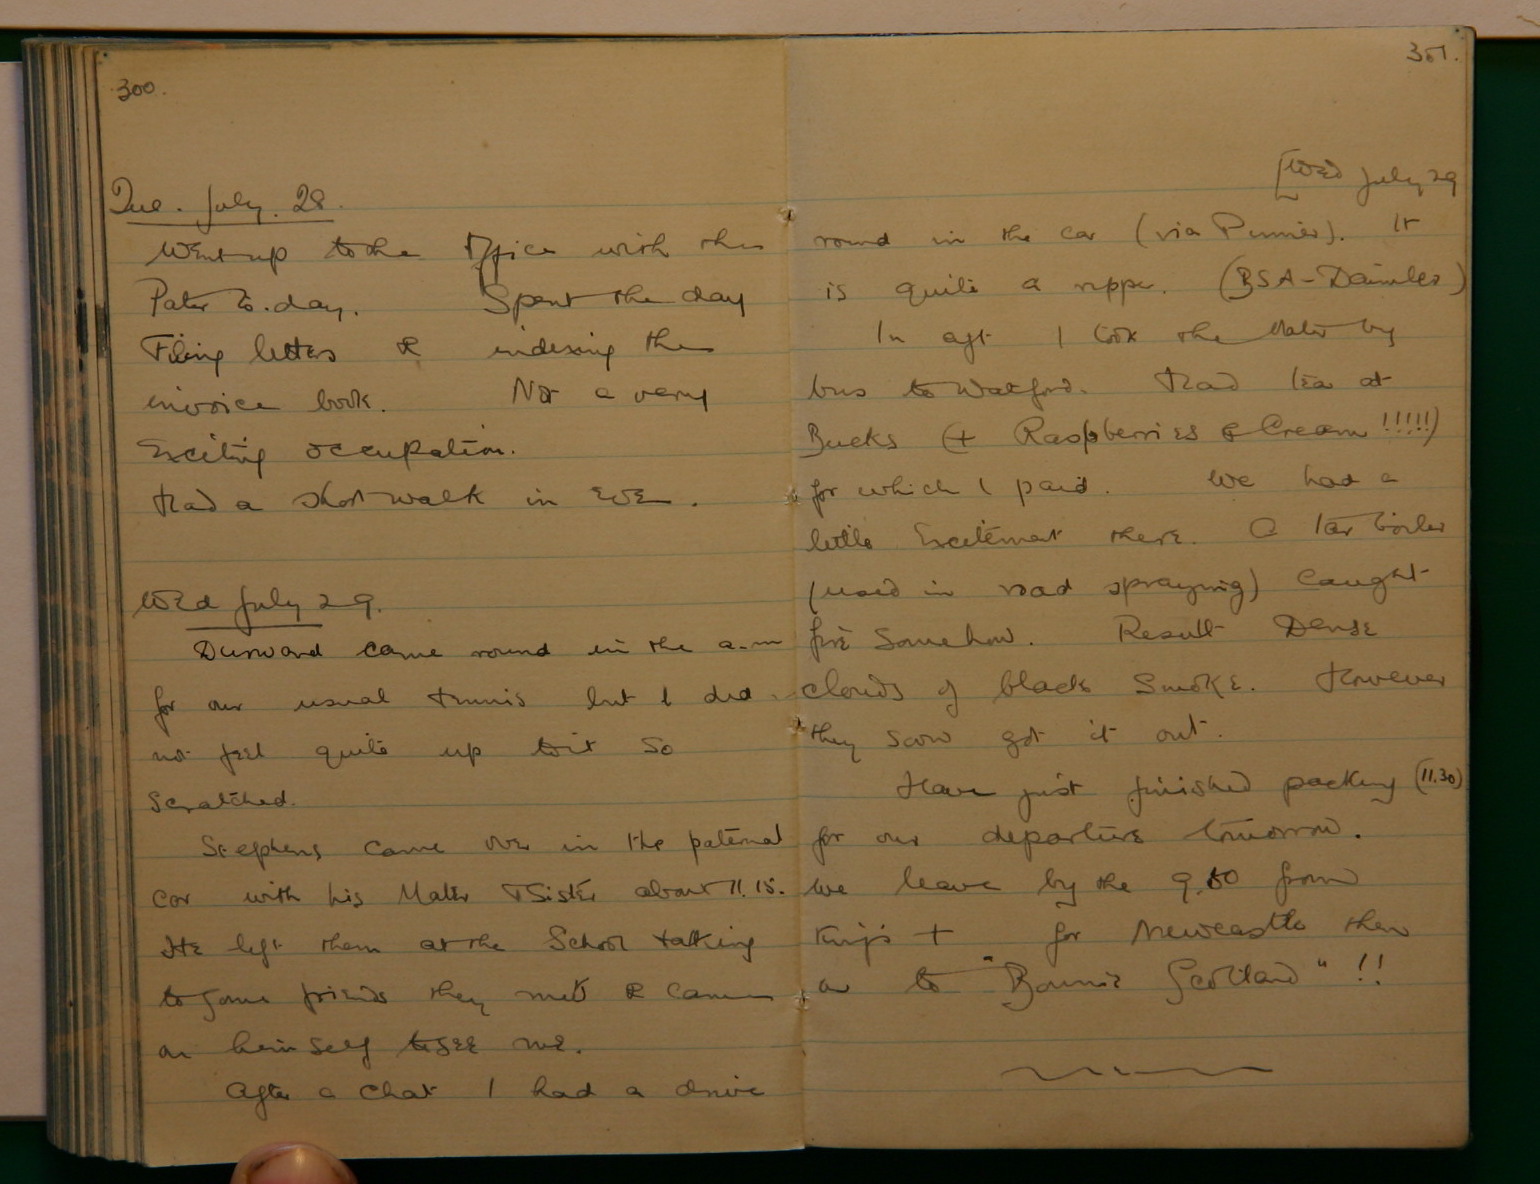 300.
Tue. July. 28.
Went up to the Office with the
Pater to.day. Spent the day
Filing letters & indexing the
invoice book. Not a very
Exciting occupation.
Had a short walk in EVE.
Wed July 29.
Durward came round in the a.m
for our usual tennis but I did
not feel quite up to it so
scratched.
Stephens came over in the paternal
car with his Mater & Sister about 11.15.
He left them at the School talking
to some friends they met & came
on himself to see me.
After a chat I had a drive
301.
[Wed July 29
round in the car (via Pinner). It
is quite a ripper. (BSA-Daimler)
In aft I took the Mater by
bus to Watford. Had tea at
Bucks (+ Raspberries & Cream !!!!!)
for which I paid. We had a
little Excitement there. A tar boiler
(used in road spraying) caught
fire somehow. Result Dense
clouds of black smoke. However
they soon got it out.
Have just finished packing (11.30)
for our departure tomorrow.
We leave by the 9.50 from
King's + for Newcastle then
on to "Bonnie Scotland" !!